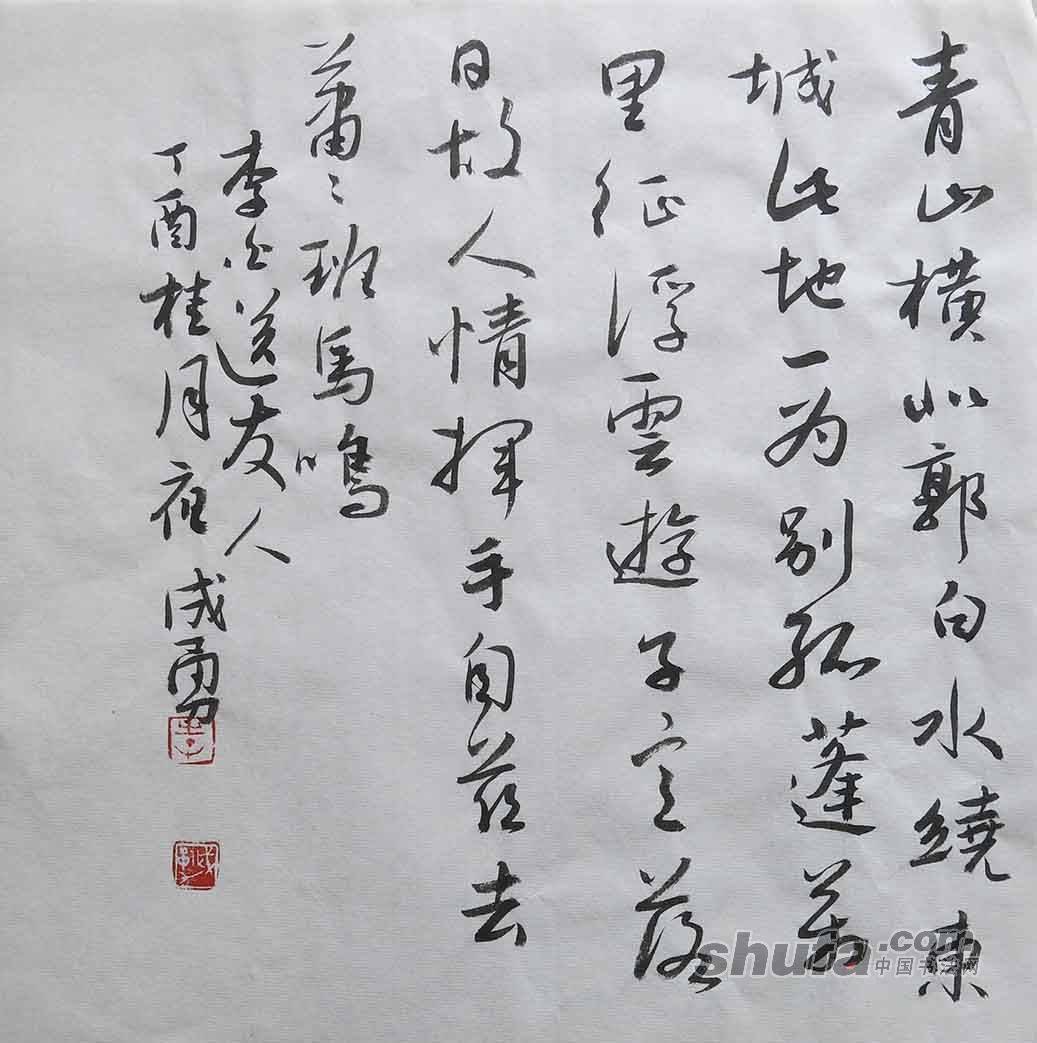 青山橫北郭白水繞東
城此地一为别孤蓬萬
里征浮雲遊子意落
日故人情揮手自茲去
蕭〻班馬鳴
李白送友人
丁酉桂月夜 成勇
李
shufa.com
中国书法网